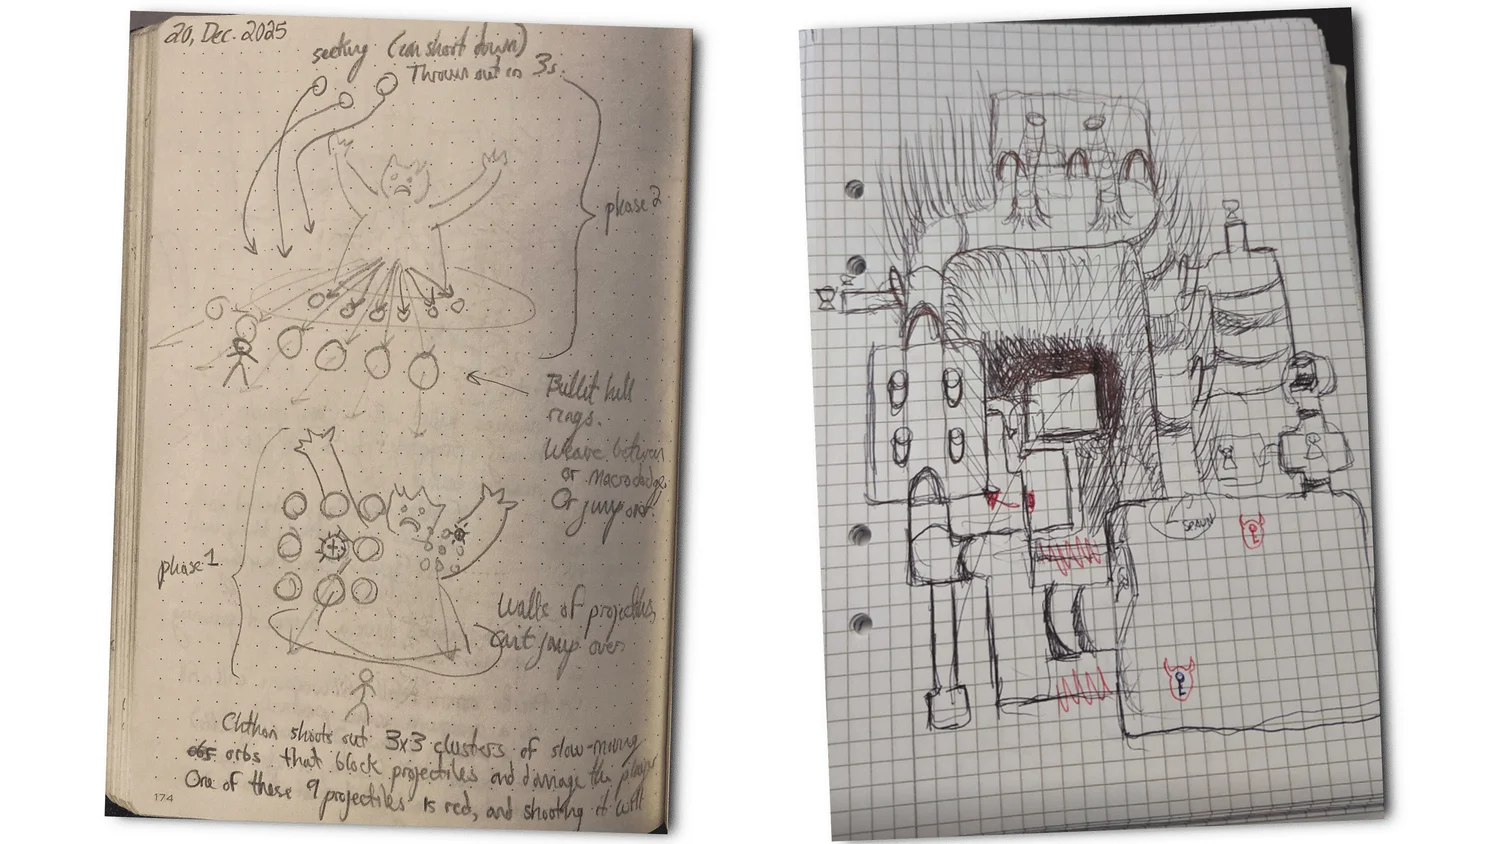 20, Dec. 2025
seeking (can shoot down)
Thrown out in 3s.
phase 2
Bullet hell
rings.
Weave between
or macrododge
Or jump over.
phase 1
Walls of projectiles,
can't jump over
Chthon shoots out 3x3 clusters of slow-moving
orbs that block projectiles and damage the player
One of these 9 projectiles is red, and shooting it will
174
SPAWN